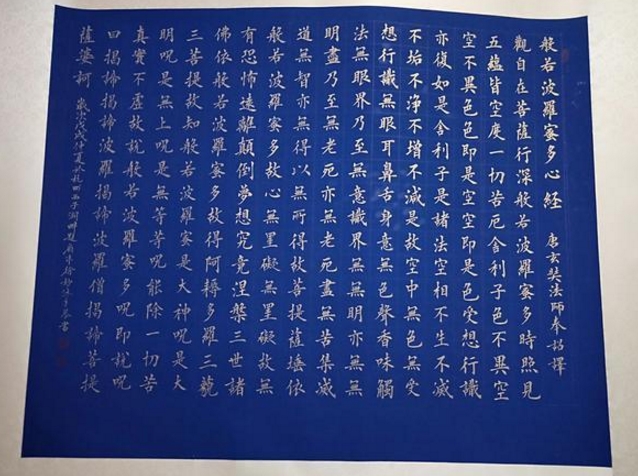 般若波羅蜜多心經 唐玄奘法師奉詔譯
觀自在菩薩行深般若波羅蜜多時照見
五蘊皆空度一切苦厄舍利子色不異空
空不異色色即是空空即是色受想行識
亦復如是舍利子是諸法空相不生不滅
不垢不净不增不減是故空中無色無受
想行識無眼耳鼻舌身意無色聲香味觸
法無眼界乃至無意識界無無明亦無無
明盡乃至無老死亦無老死盡無苦集滅
道無智亦無得以無所得故菩提薩埵依
般若波羅蜜多故心無罣礙無罣礙故無
有恐怖遠離顛倒夢想究竟涅槃三世諸
佛依般若波羅蜜多故得阿耨多羅三藐
三菩提故知般若波羅蜜多是大神呪是大
明呪是無上呪是無等等呪能除一切苦
真實不虛故說般若波羅蜜多呪即說呪
曰揭諦揭諦波羅揭諦波羅僧揭諦菩提
薩婆柯 歲次戊戌仲夏於杭州西子湖畔 書